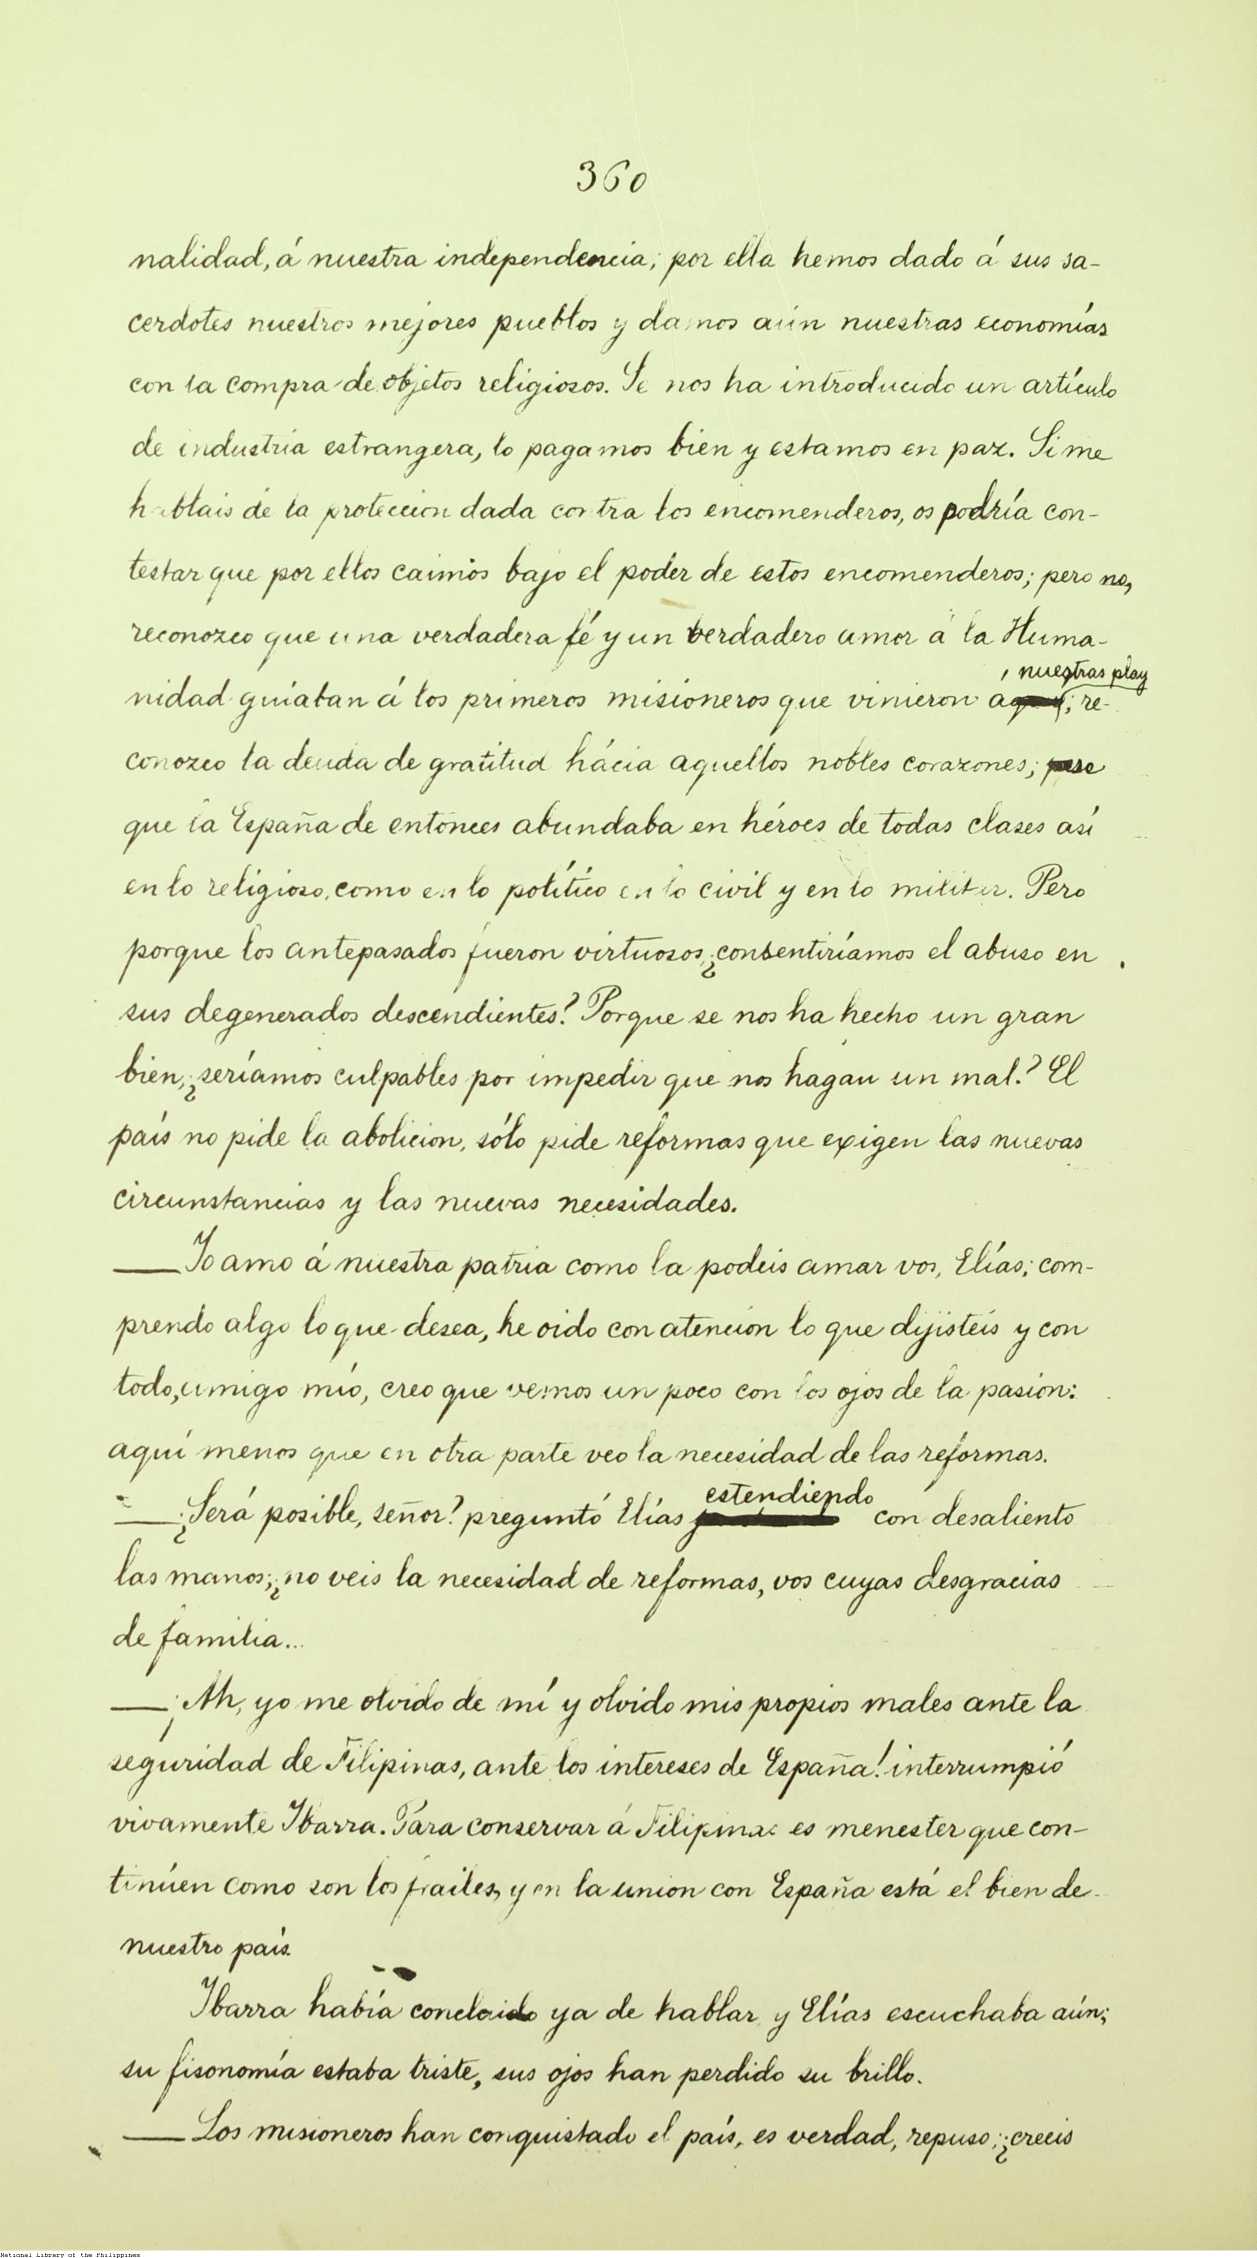 360
nalidad, á nuestra independencia; por ella hemos dado á sus sa-
cerdotes nuestros mejores pueblos y damos aún nuestras economías
con la compra de objetos religiosos. Se nos ha introducido un artículo
de industria estrangera, lo pagamos bien y estamos en paz. Si me
hablais de la proteccion dada contra los encomenderos, os podría con-
testar que por ellos caimos bajo el poder de estos encomenderos; pero no,
reconozco que una verdadera fé y un verdadero amor á la Huma-
nuestras play
nidad guiaban á los primeros misioneros que vinieron a ; re-
conozco la deuda de gratitud hácia aquellos nobles corazones;
que la España de entonces abundaba en héroes de todas clases así
en lo religioso, como en lo político en lo civil y en lo militar. Pero
porque los antepasados fueron virtuosos, ¿consentiríamos el abuso en
sus degenerados descendientes? Porque se nos ha hecho un gran
bien, ¿seríamos culpables por impedir que nos hagan un mal? El
país no pide la abolicion, sólo pide reformas que exigen las nuevas
circunstancias y las nuevas necesidades.
—Yo amo á nuestra patria como la podeis amar vos, Elías; com-
prendo algo lo que desea, he oido con atencion lo que dijisteis y con
todo, amigo mío, creo que vemos un poco con los ojos de la pasion:
aquí menos que en otra parte veo la necesidad de las reformas.
estendiendo
—¿Será posible, señor? preguntó Elías con desaliento
las manos; ¿no veis la necesidad de reformas, vos cuyas desgracias
de familia...
—¡Ah, yo me olvido de mí y olvido mis propios males ante la
seguridad de Filipinas, ante los intereses de España! interrumpió
vivamente Ibarra. Para conservar á Filipinas es menester que con-
tinúen como son los frailes, y en la union con España está el bien de
nuestro país.
Ibarra había concluido ya de hablar y Elías escuchaba aún;
su fisonomía estaba triste, sus ojos han perdido su brillo.
—Los misioneros han conquistado el país, es verdad, repuso; ¿creeis
National Library of the Philippines